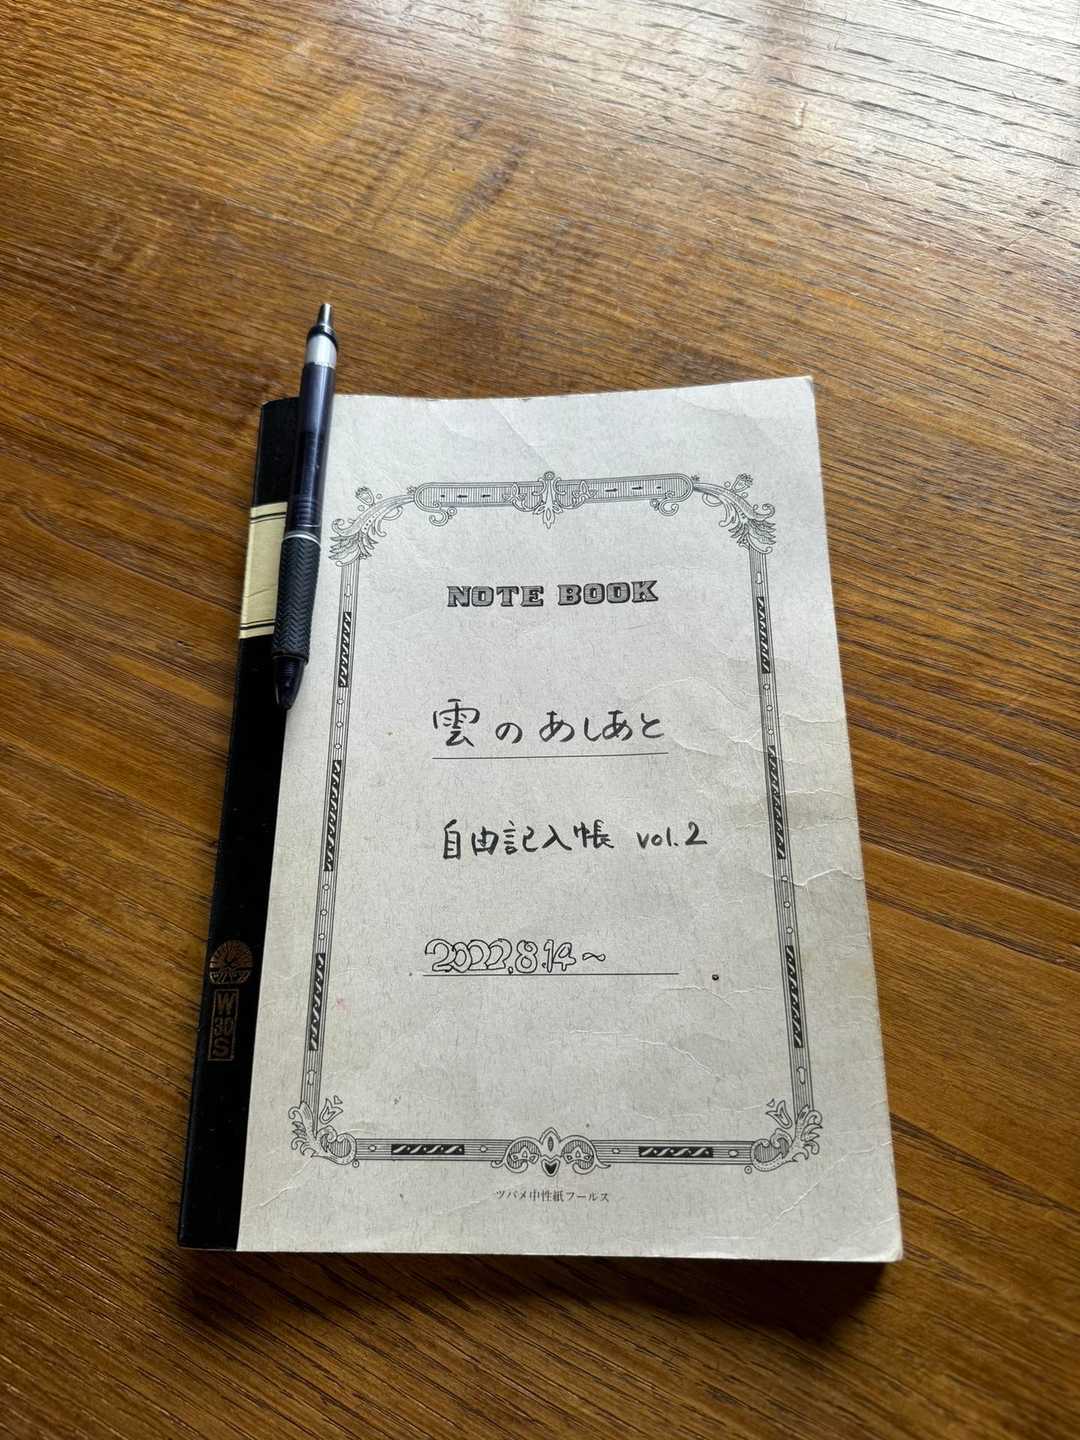 NOTE BOOK
雲のあしあと
自由記入帳 vol.2
2022.8.14~
W
30
S
ツバメ中性紙フールス